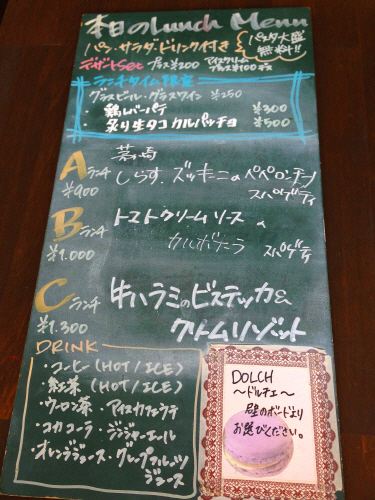 本日のLunch Menu
パン・サラダ・ドリンク付き
パスタ大盛
無料!!
デザートSet プラス¥200 アイスクリーム
プラス¥100
ランチタイム限定
グラスビール・グラスワイン ¥250
・鶏レバーパテ ¥300
炙り生タコカルパッチョ ¥500
Aランチ
¥900
茅ヶ崎
しらす、ズッキーニのペペロンチーノ
スパゲティ
Bランチ
¥1.000
トマトクリームソース
カルボナーラ スパゲティ
Cランチ
¥1.300
牛ハラミのビステッカ&
クリームリゾット
DRINK
・コーヒー(HOT/ICE)
・紅茶(HOT/ICE)
・ウーロン茶・アイスカフェラテ
・コカコーラ・ジンジャーエール
オレンジジュース・グレープフルーツ
ジュース
DOLCH
〜ドルチェ〜
壁のボードより
お選びください。